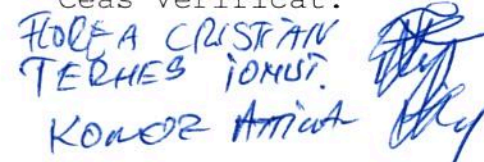 Ceas verificat:
HOREA CRISTIAN
TERHES IONUT.
KONCZ Attila